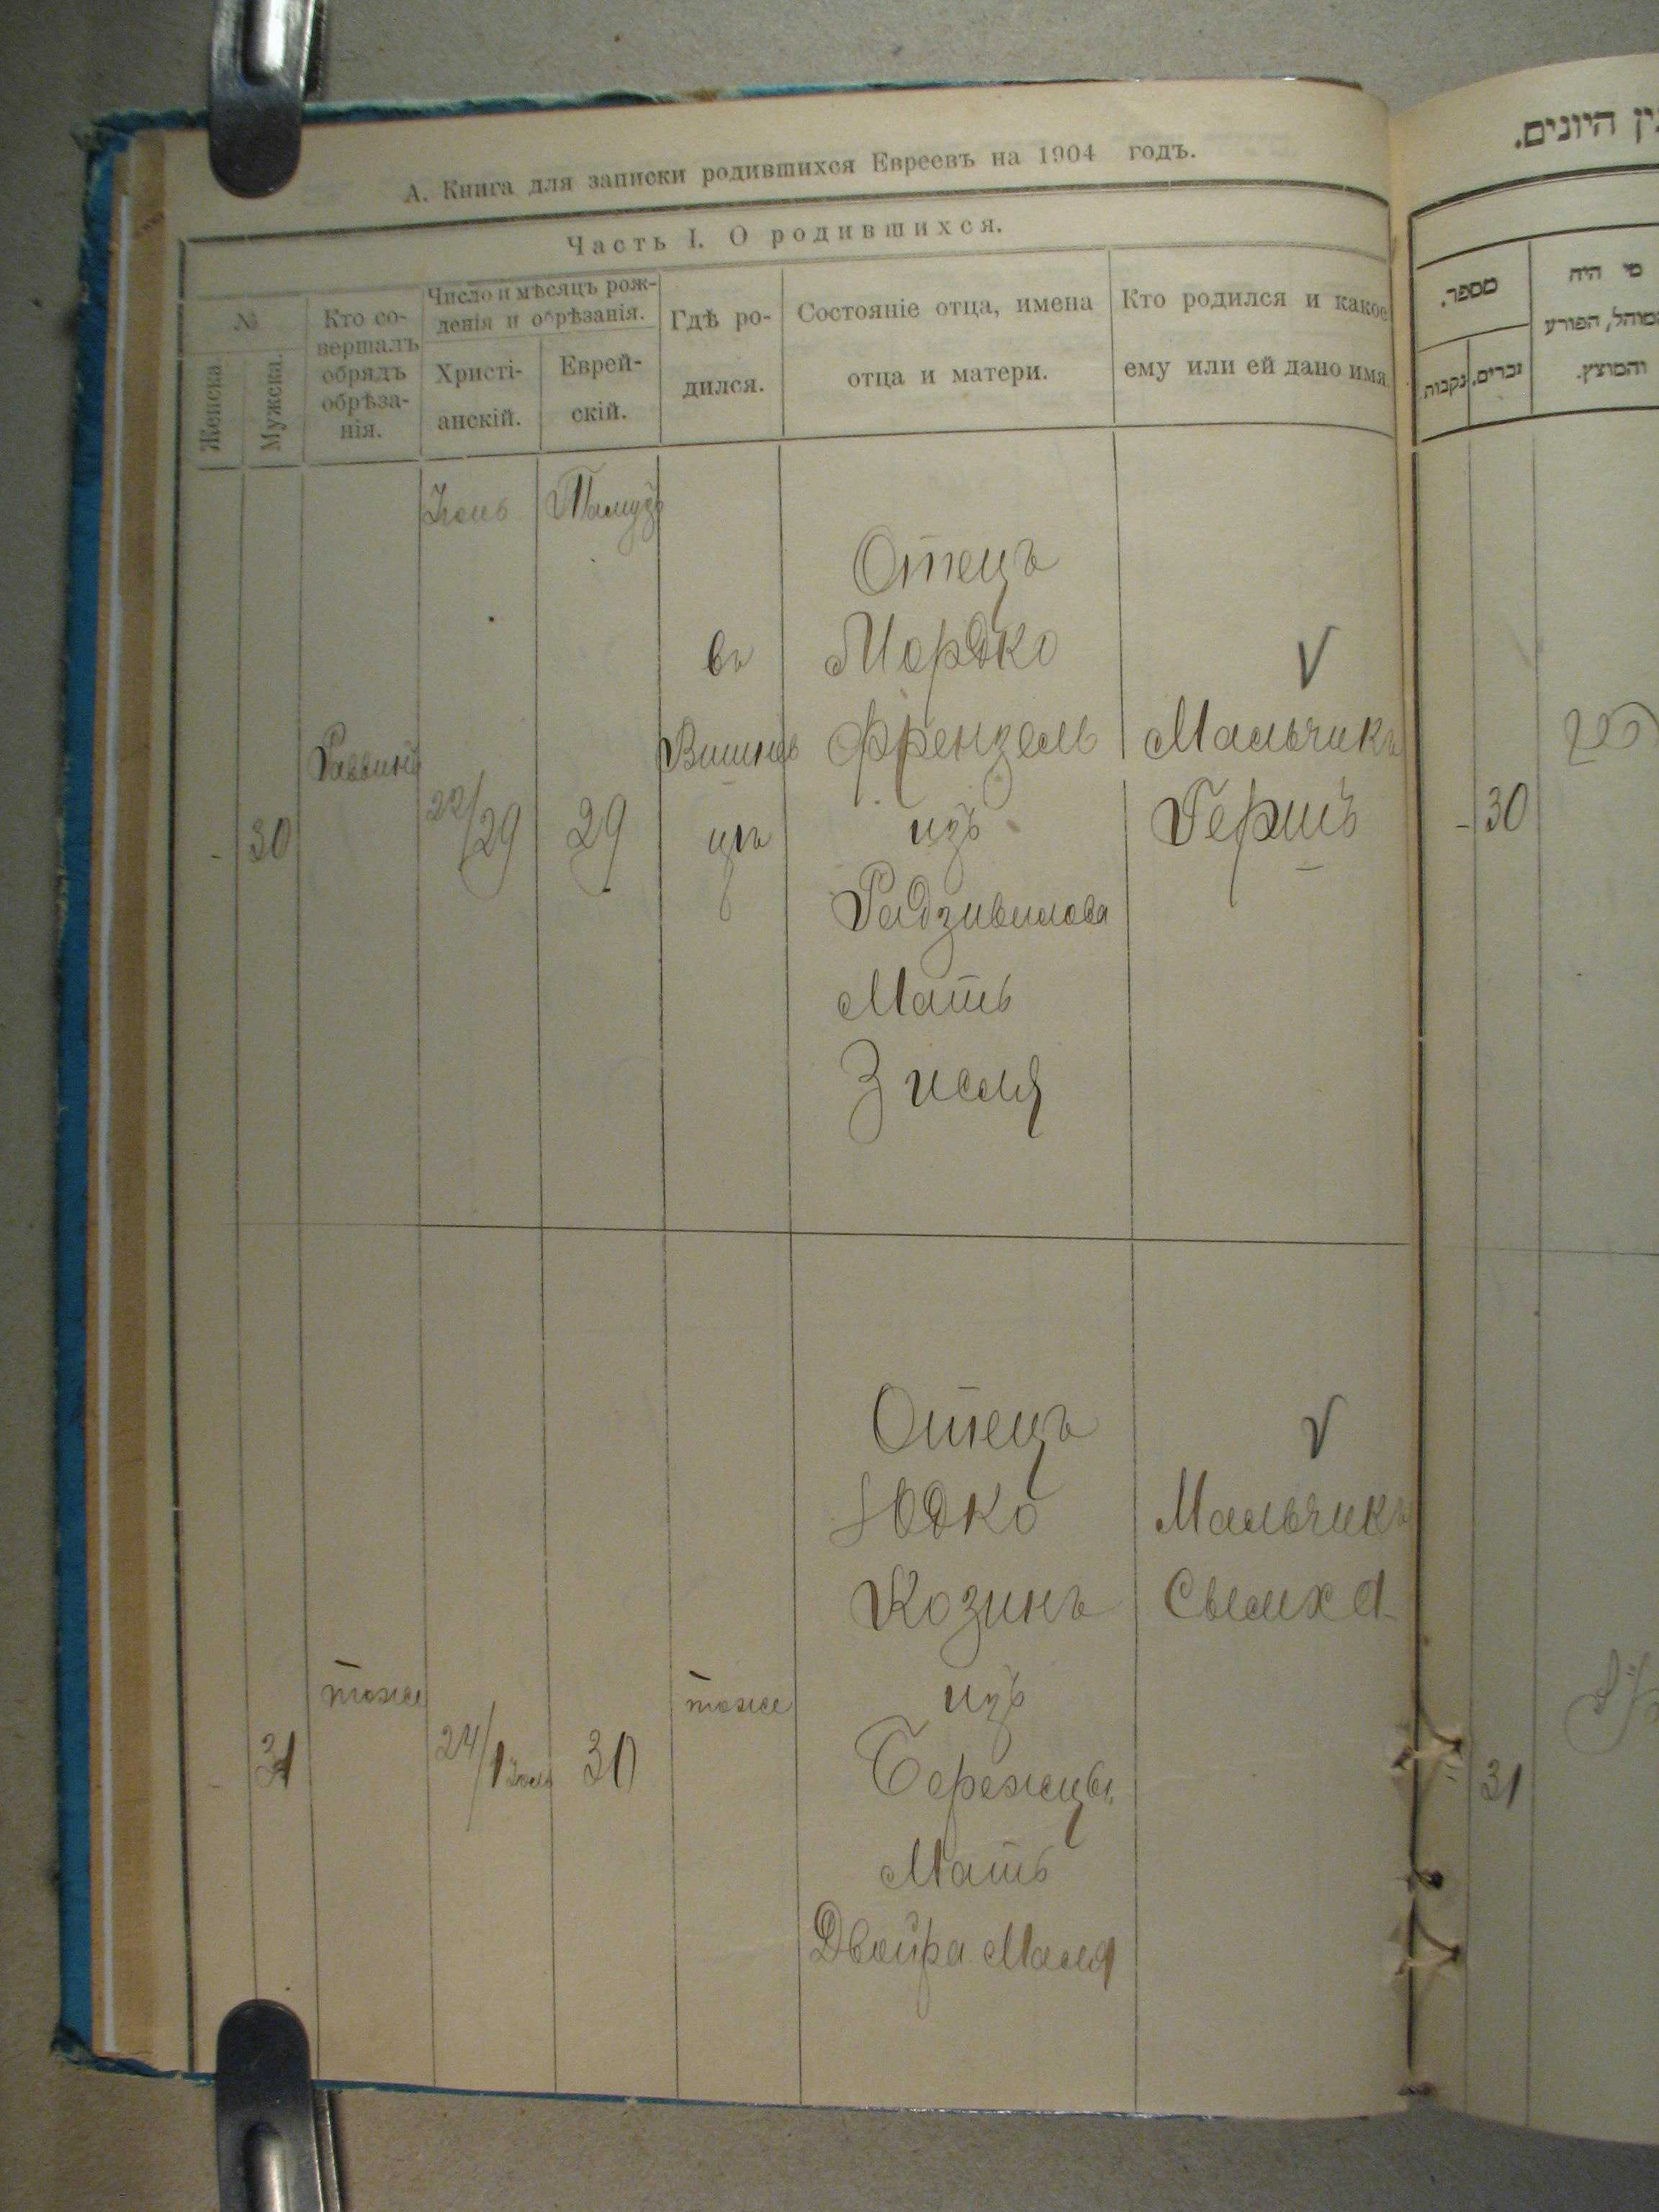 А. Книга для записки родившихся Евреевъ на 1904 годъ.
Часть I. О родившихся.
№
Женска.
Мужска.
Кто со-
вершалъ
обрядъ
обрѣза-
нія.
Число и мѣсяцъ рож-
денія и обрѣзанія.
Христі-
анскій.
Еврей-
скій.
Гдѣ ро-
дился.
Состояніе отца, имена
отца и матери.
Кто родился и какое
ему или ей дано имя
Тамузъ
-
30
Раввинъ
22/29
29
въ
Вишнев
цѣ
Отецъ
Мордко
Френзель
изъ
Радзивилова
Мать
Зисля
V
Мальчикъ
Гершъ
-
31
тоже
24/1 Iюль
30
тоже
Отецъ
Юдко
Козинъ
изъ
Бережцы
Мать
Двойра Маля
V
Мальчикъ
היונים.
מספר.
זכרים.
נקבות.
מי היה
המוהל, הפורע
והמוצץ.
- 30
31